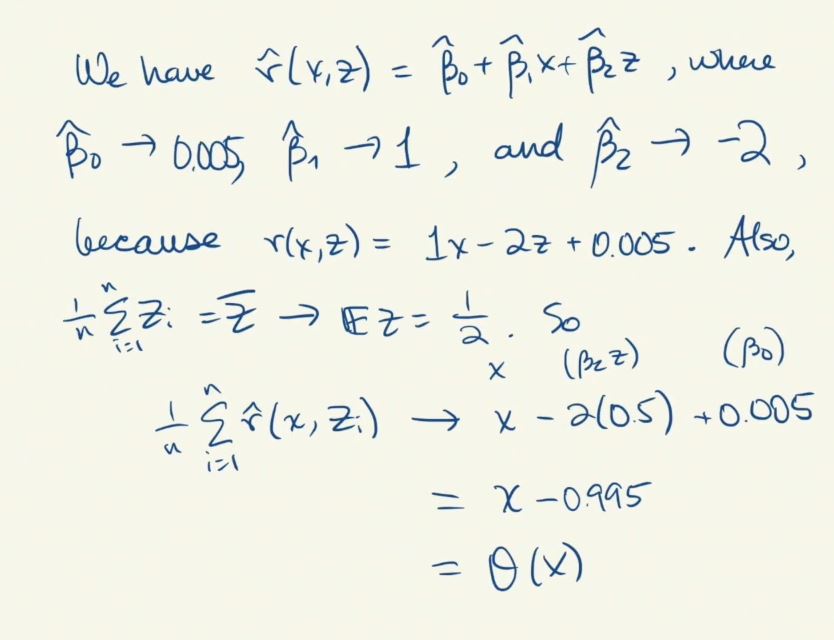 We have r̂(x,z) = β̂₀ + β̂₁x + β̂₂z , where
β̂₀ → 0.005, β̂₁ → 1 , and β̂₂ → -2 ,
because r(x,z) = 1x - 2z + 0.005 . Also,
1/n ∑ᵢ₌₁ⁿ Zᵢ = Z̅ → 𝔼Z = 1/2 . So
x (β₂z) (β₀)
1/n ∑ᵢ₌₁ⁿ r̂(x, Zᵢ) → x - 2(0.5) + 0.005
= x - 0.995
= θ(x)